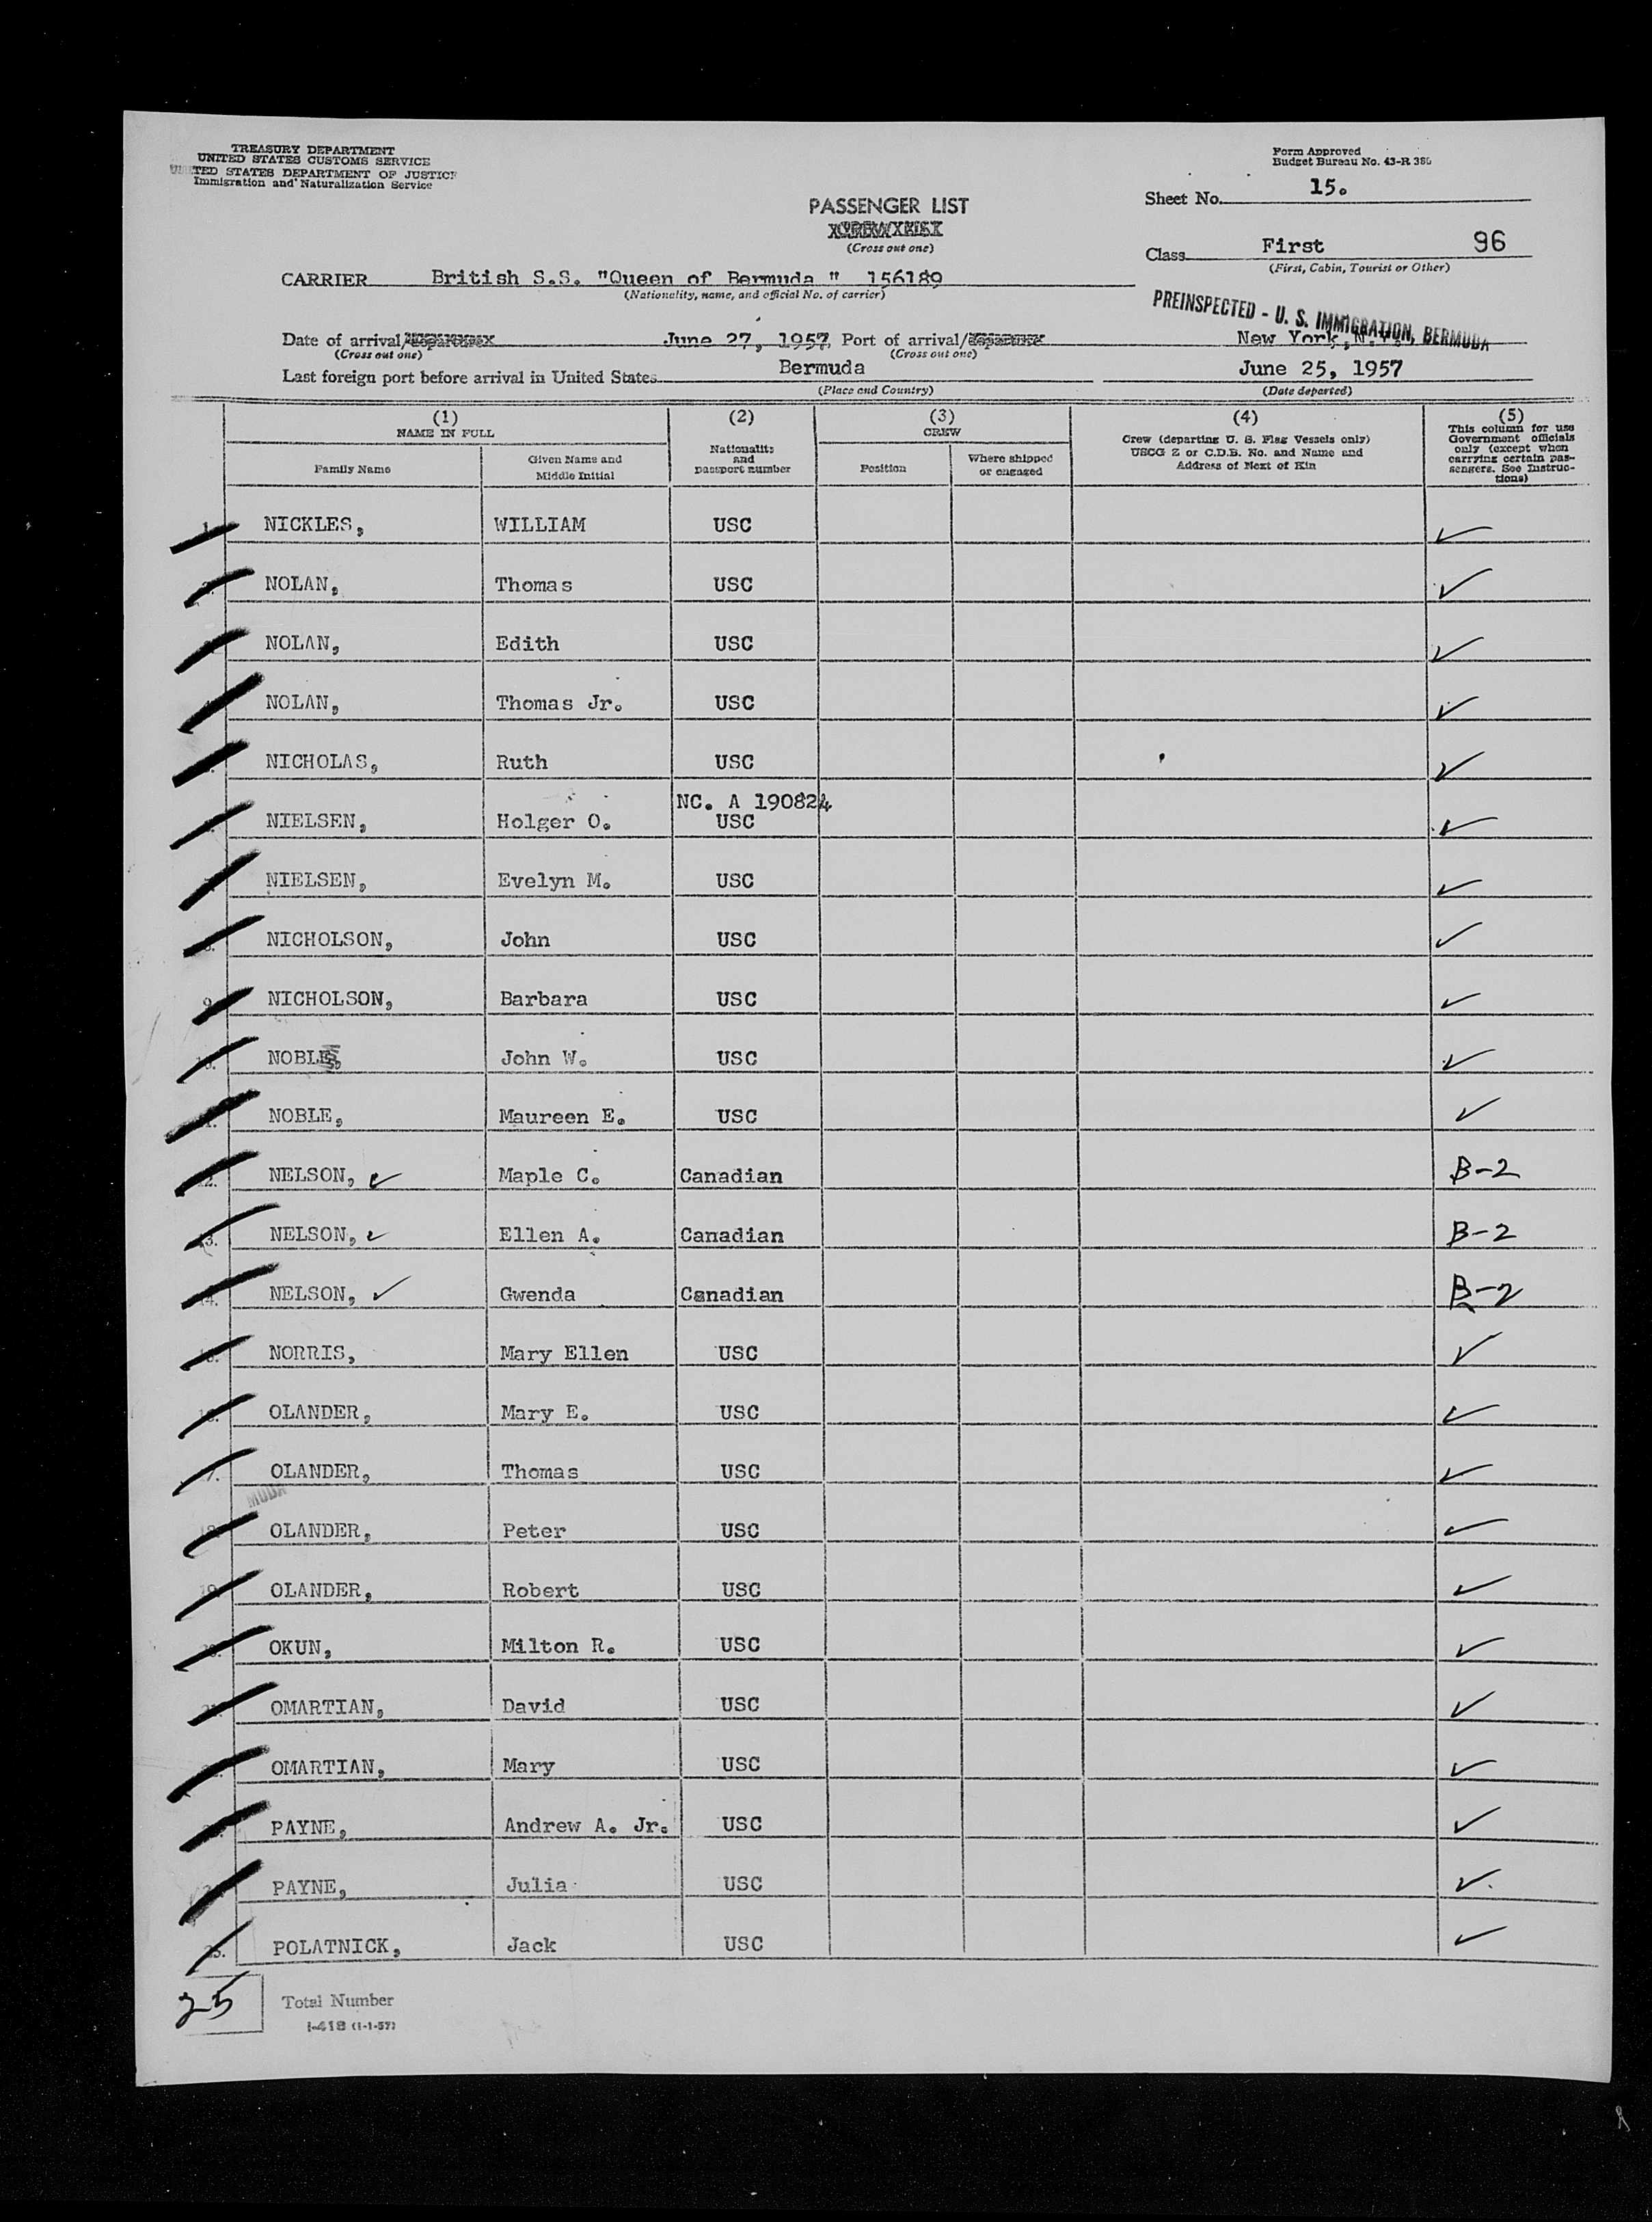 TREASURY DEPARTMENT
UNITED STATES CUSTOMS SERVICE
UNITED STATES DEPARTMENT OF JUSTICE
Immigration and Naturalization Service
Form Approved
Budget Bureau No. 43-R 385
Sheet No. 15.
PASSENGER LIST
(Cross out one)
Class First 96
(First, Cabin, Tourist or Other)
CARRIER British S.S. "Queen of Bermuda " 156189
(Nationality, name, and official No. of carrier)
PREINSPECTED - U. S. IMMIGRATION, BERMUDA
Date of arrival/departure June 27, 1957 Port of arrival/departure New York, N.Y.
(Cross out one) (Cross out one)
Last foreign port before arrival in United States Bermuda June 25, 1957
(Place and Country) (Date departed)
(1) (2) (3) (4) (5)
NAME IN FULL Nationality and passport number CREW Crew (departing U. S. Flag Vessels only) USCG Z or C.D.B. No. and Name and Address of Next of Kin This column for use Government officials only (except when carrying certain passengers. See Instructions)
Family Name Given Name and Middle Initial Position Where shipped or engaged
1. NICKLES, WILLIAM USC ✓
2. NOLAN, Thomas USC ✓
3. NOLAN, Edith USC ✓
4. NOLAN, Thomas Jr. USC ✓
5. NICHOLAS, Ruth USC ✓
NC. A 190824
6. NIELSEN, Holger O. USC ✓
7. NIELSEN, Evelyn M. USC ✓
8. NICHOLSON, John USC ✓
9. NICHOLSON, Barbara USC ✓
10. NOBLE, John W. USC ✓
11. NOBLE, Maureen E. USC ✓
12. NELSON, ✓ Maple C. Canadian B-2
13. NELSON, ✓ Ellen A. Canadian B-2
14. NELSON, ✓ Gwenda Canadian B-2
15. NORRIS, Mary Ellen USC ✓
16. OLANDER, Mary E. USC ✓
17. OLANDER, Thomas USC ✓
MUDA
18. OLANDER, Peter USC ✓
19. OLANDER, Robert USC ✓
20. OKUN, Milton R. USC ✓
21. OMARTIAN, David USC ✓
22. OMARTIAN, Mary USC ✓
23. PAYNE, Andrew A. Jr. USC ✓
24. PAYNE, Julia USC ✓
25. POLATNICK, Jack USC ✓
25 Total Number
I-418 (1-1-57)